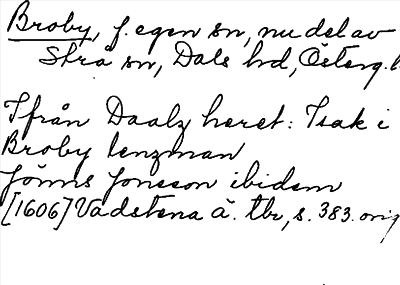 Broby, f. egen sn, nu del av
Strå sn, Dals hd, Österg. l
Ifrån Daalz heret: Isak i
Broby lenzman
Jönns Jonsson ibidem
[1606] Vadstena ä. tbr, s. 383. orig